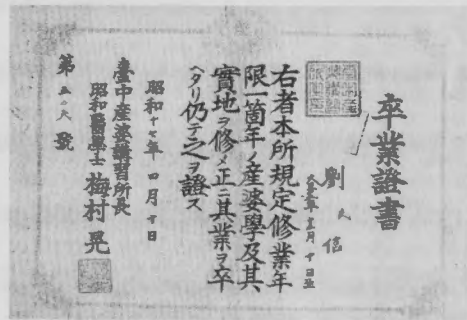 卒業證書
劉氏信
右者本所規定修業年
限一箇年ノ産婆學及其
實地ヲ修メ正ニ其業ヲ卒
ヘタリ仍テ之ヲ證ス
昭和十七年四月十日
臺中産婆講習所長
昭和醫學士 梅村晃
第五〇六號